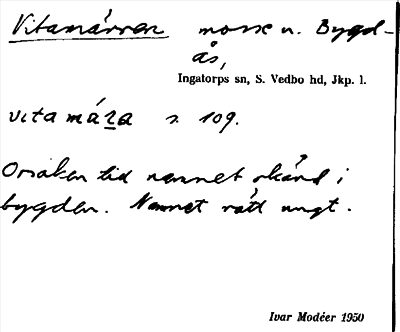 Vitamärren mosse n. Bygd-
ås,
Ingatorps sn, S. Vedbo hd, Jkp. l.
vitamára s. 109.
Orsaken till namnet okänd i
bygden. Namnet rätt ungt.
Ivar Modéer 1950